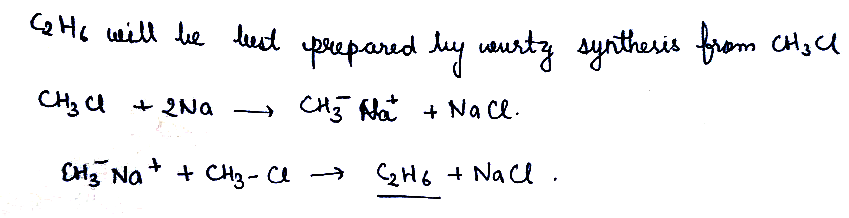 C₂H₆ will be best prepared by wurtz synthesis from CH₃Cl
CH₃Cl + 2Na ⟶ CH₃⁻ Na⁺ + NaCl.
CH₃⁻Na⁺ + CH₃-Cl → C₂H₆ + NaCl.